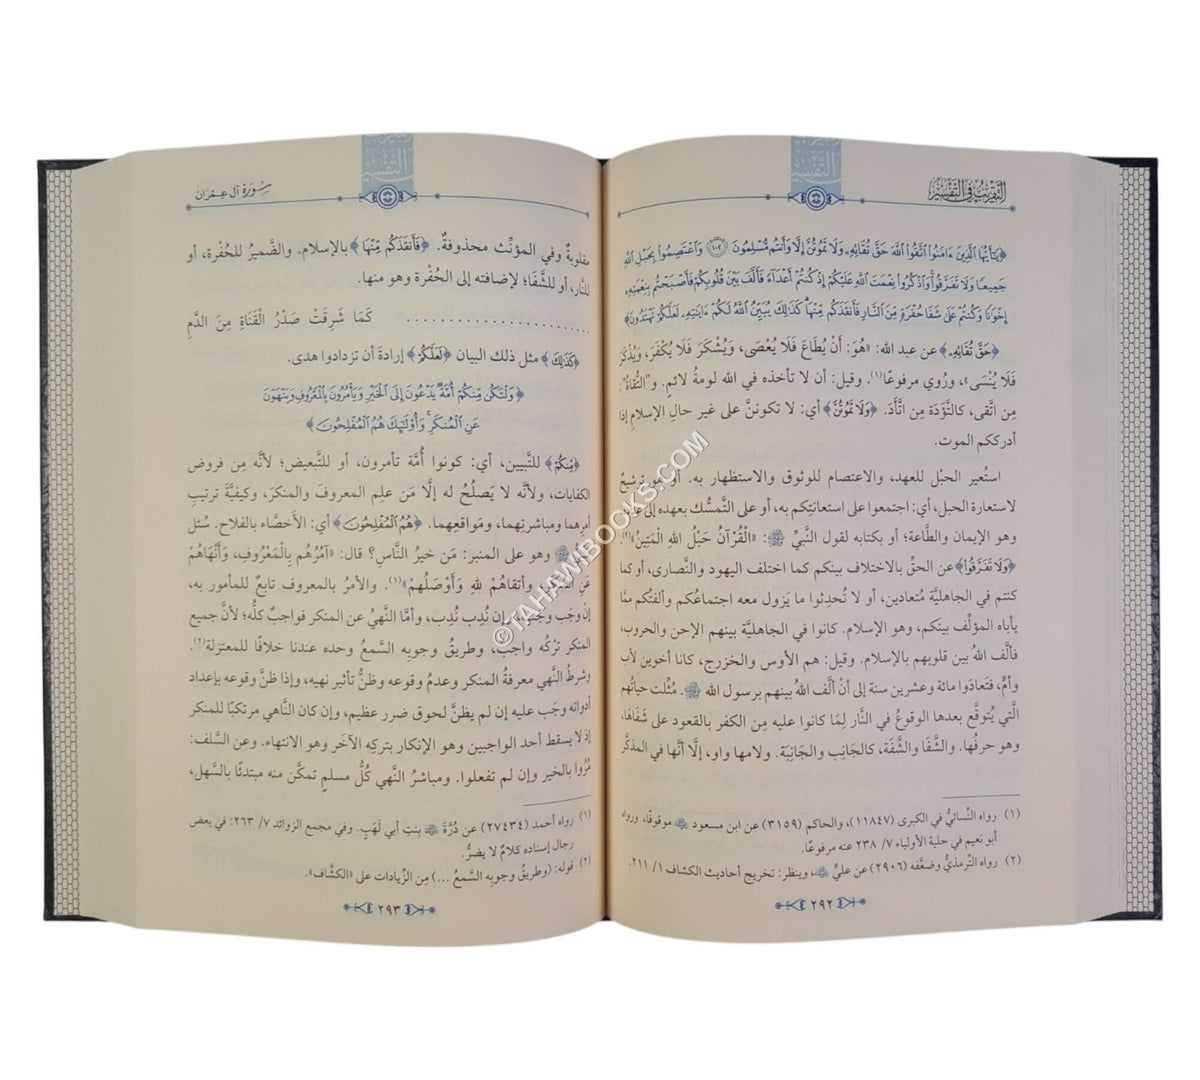 التقريب في التفسير
﴿يَٰٓأَيُّهَا ٱلَّذِينَ ءَامَنُوا۟ ٱتَّقُوا۟ ٱللَّهَ حَقَّ تُقَاتِهِۦ وَلَا تَمُوتُنَّ إِلَّا وَأَنتُم مُّسْلِمُونَ ١٠٢ وَٱعْتَصِمُوا۟ بِحَبْلِ ٱللَّهِ
جَمِيعًا وَلَا تَفَرَّقُوا۟ وَٱذْكُرُوا۟ نِعْمَتَ ٱللَّهِ عَلَيْكُمْ إِذْ كُنتُمْ أَعْدَآءً فَأَلَّفَ بَيْنَ قُلُوبِكُمْ فَأَصْبَحْتُم بِنِعْمَتِهِۦٓ
إِخْوَٰنًا وَكُنتُمْ عَلَىٰ شَفَا حُفْرَةٍ مِّنَ ٱلنَّارِ فَأَنقَذَكُم مِّنْهَا كَذَٰلِكَ يُبَيِّنُ ٱللَّهُ لَكُمْ ءَايَٰتِهِۦ لَعَلَّكُمْ تَهْتَدُونَ﴾
﴿حَقَّ تُقَاتِهِۦ﴾ عن عبد الله: «هُوَ: أَنْ يُطَاعَ فَلَا يُعْصَى، وَيُشْكَرَ فَلَا يُكْفَرَ، وَيُذْكَرَ
فَلَا يُنْسَى»، ورُوي مرفوعًا(١). وقيل: أن لا تأخذه في الله لومةُ لائمٍ. و"التُّقاةُ":
مِن اتَّقى، كالتُّؤَدة مِن اتَّأَدَ. ﴿وَلَا تَمُوتُنَّ﴾ أي: لا تكوننَّ على غير حالِ الإسلامِ إذا
أدرككم الموت.
استُعير الحبْل للعهد، والاعتصام للوثوق والاستظهار به. أو هو ترشيحٌ
لاستعارة الحبل، أي: اجتمعوا على استعانتِكم به، أو على التَّمسُّك بعهده إلى عباده
وهو الإيمان والطَّاعة؛ أو بكتابه لقول النبيِّ ﷺ: «الْقُرْآنُ حَبْلُ اللهِ الْمَتِينُ»(٢).
﴿وَلَا تَفَرَّقُوا۟﴾ عن الحقِّ بالاختلاف بينكم كما اختلف اليهود والنَّصارى، أو كما
كنتم في الجاهليَّة مُتعادين، أو لا تُحدِثوا ما يَزول معه اجتماعُكم وألفتُكم ممَّا
يأباه المؤلِّف بينَكم، وهو الإسلام. كانوا في الجاهليَّة بينهم الإحن والحروب،
فألَّف اللهُ بين قلوبهم بالإسلام. وقيل: هم الأوس والخزرج، كانا أخوين لأب
وأمٍّ، فتَعادَوا مائة وعشرين سنة إلى أنْ ألَّف اللهُ بينهم برسول الله ﷺ. مُثِّلت حياتُهم
الَّتي يُتوقَّع بعدها الوقوعُ في النَّار لِمَا كانوا عليه مِن الكفر بالقعود على شَفَاهَا،
وهو حرفُها. والشَّفَا والشَّفَة، كالجَانِب والجَانِبَة. ولامها واو، إلَّا أنَّها في المذكَّر
(١) رواه النَّسائيُّ في الكبرى (١١٨٤٧)، والحاكم (٣١٥٩) عن ابن مسعود موقوفًا، ورواه
أبو نعيم في حلية الأولياء ٧/ ٢٣٨ عنه مرفوعًا.
(٢) رواه التِّرمذيُّ وضعَّفه (٢٩٠٦) عن عليٍّ، وينظر: تخريج أحاديث الكشاف ١/ ٢١١.
٢٩٢
سُورَة آل عِمْرَان
مقلوبةٌ وفي المؤنَّث محذوفةٌ. ﴿فَأَنقَذَكُم مِّنْهَا﴾ بالإسلام. والضَّميرُ للحُفْرة، أو
للنَّار، أو للشَّفَا؛ لإضافته إلى الحُفْرة وهو منها.
........................ كَمَا شَرِقَتْ صَدْرُ الْقَنَاةِ مِنَ الدَّمِ
﴿كَذَٰلِكَ﴾ مثل ذلك البيان ﴿لَعَلَّكُمْ﴾ إرادةَ أن تزدادوا هدى.
﴿وَلْتَكُن مِّنكُمْ أُمَّةٌ يَدْعُونَ إِلَى ٱلْخَيْرِ وَيَأْمُرُونَ بِٱلْمَعْرُوفِ وَيَنْهَوْنَ
عَنِ ٱلْمُنكَرِ وَأُو۟لَٰٓئِكَ هُمُ ٱلْمُفْلِحُونَ﴾
﴿مِّنكُمْ﴾ للتَّبيين، أي: كونوا أُمَّة تأمرون، أو للتَّبعيض؛ لأنَّه مِن فروض
الكفايات، ولأنَّه لا يَصلُحُ له إلَّا مَن علِم المعروفَ والمنكرَ، وكيفيَّةَ ترتيبِ
أمرِهما ومباشرتِهما، ومَواقعِهما. ﴿هُمُ ٱلْمُفْلِحُونَ﴾ أي: الأخصَّاء بالفلاح. سُئل
ﷺ وهو على المنبر: مَن خيرُ النَّاس؟ قال: «آمَرُهُم بِالْمَعْرُوفِ، وَأَنْهَاهُمْ
عَنِ الْمُنْكَرِ، وأتقاهُمْ للهِ وَأَوْصَلُهُمْ»(١). والأمرُ بالمعروف تابعٌ للمأمور به،
إنْ وجَب وجَب، وإن نُدِب نُدِب، وأمَّا النَّهيُ عن المنكر فواجبٌ كلُّه؛ لأنَّ جميع
المنكر تَرْكُه واجبٌ، وطريقُ وجوبِه السَّمعُ وحده عندنا خلافًا للمعتزلة(٢).
وشرطُ النَّهي معرفةُ المنكر وعدمُ وقوعه وظنُّ تأثير نهيِه، وإذا ظنَّ وقوعه بإعداد
أدواته وجَب عليه إن لم يظنَّ لحوق ضرر عظيم، وإن كان النَّاهي مرتكبًا للمنكر
إذ لا يسقط أحد الواجبين وهو الإنكار بتركِه الآخَر وهو الانتهاء. وعن السَّلف:
مُرُوا بالخير وإن لم تفعلوا. ومباشرُ النَّهي كُلُّ مسلمٍ تمكَّن منه مبتدئًا بالسَّهل،
(١) رواه أحمد (٢٧٤٣٤) عن دُرَّةَ بنتِ أبي لَهَبٍ. وفي مجمع الزوائد ٧/ ٢٦٣: في بعض
رجال إسناده كلامٌ لا يضرُّ.
(٢) قوله: (وطريقُ وجوبِه السَّمعُ ...) مِن الزِّيادات على «الكشَّاف».
٢٩٣
©TAHAWIBOOKS.COM